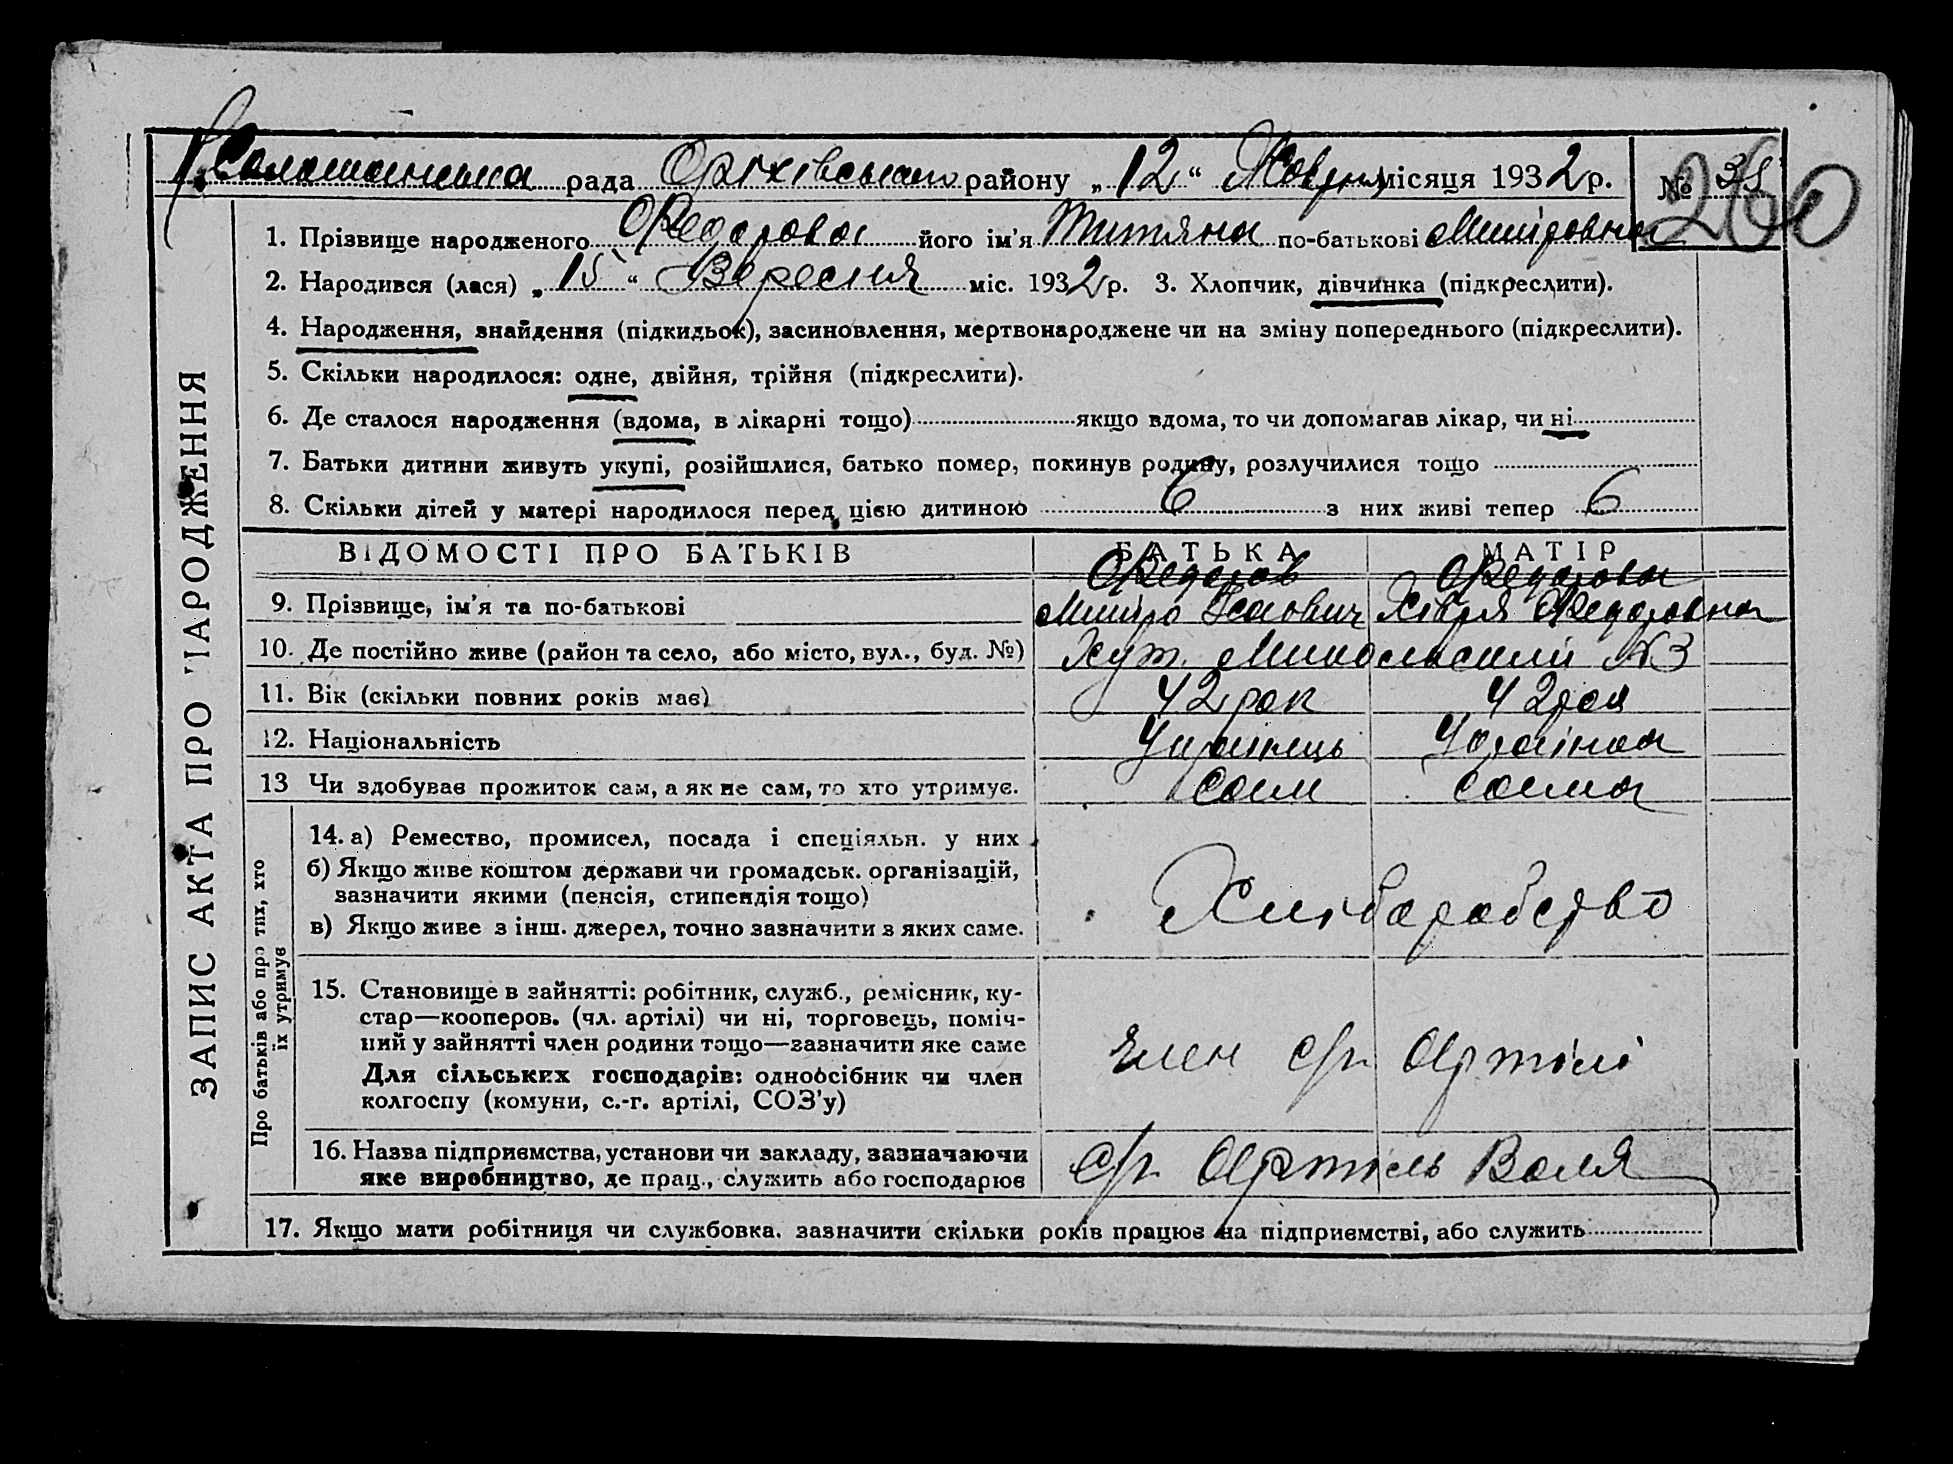 Соломанська рада Оріхівського району „12“ Жовтня місяця 1932 р. № 35
260
1. Прізвище народженого Федорова його ім'я Титяна по-батькові Митровна
2. Народився (лася) „15“ Вересня міс. 1932 р. 3. Хлопчик, дівчинка (підкреслити).
4. Народження, знайдення (підкидьок), засиновлення, мертвонароджене чи на зміну попереднього (підкреслити).
5. Скільки народилося: одне, двійня, трійня (підкреслити).
6. Де сталося народження (вдома, в лікарні тощо) якщо вдома, то чи допомагав лікар, чи ні
7. Батьки дитини живуть укупі, розійшлися, батько помер, покинув родину, розлучилися тощо
8. Скільки дітей у матері народилося перед цією дитиною 6 з них живі тепер 6
ВІДОМОСТІ ПРО БАТЬКІВ БАТЬКА МАТІР
Федоров Федорова
9. Прізвище, ім'я та по-батькові Хівря Федоровна
10. Де постійно живе (район та село, або місто, вул., буд. №) Хут. Микольский №3
11. Вік (скільки повних років має) 42 рок 42 рок
12. Національність Українець Українка
13 Чи здобуває прожиток сам, а як не сам, то хто утримує. сам сама
14. а) Ремество, промисел, посада і спеціяльн. у них
б) Якщо живе коштом держави чи громадськ. організацій,
зазначити якими (пенсія, стипендія тощо)
в) Якщо живе з інш. джерел, точно зазначити з яких саме.
Хліборобство
15. Становище в зайнятті: робітник, служб., ремісник, ку-
стар—кооперов. (чл. артілі) чи ні, торговець, поміч-
ний у зайнятті член родини тощо—зазначити яке саме
Для сільських господарів: одноосібник чи член
колгоспу (комуни, с.-г. артілі, СОЗ'у)
Член с/г. Артілі
16. Назва підприємства, установи чи закладу, зазначаючи
яке виробництво, де прац., служить або господарює
с/г. Артіль Воля
17. Якщо мати робітниця чи службовка. зазначити скільки років працює на підприємстві, або служить
ЗАПИС АКТА ПРО НАРОДЖЕННЯ
Про батьків або про тих, хто
їх утримує